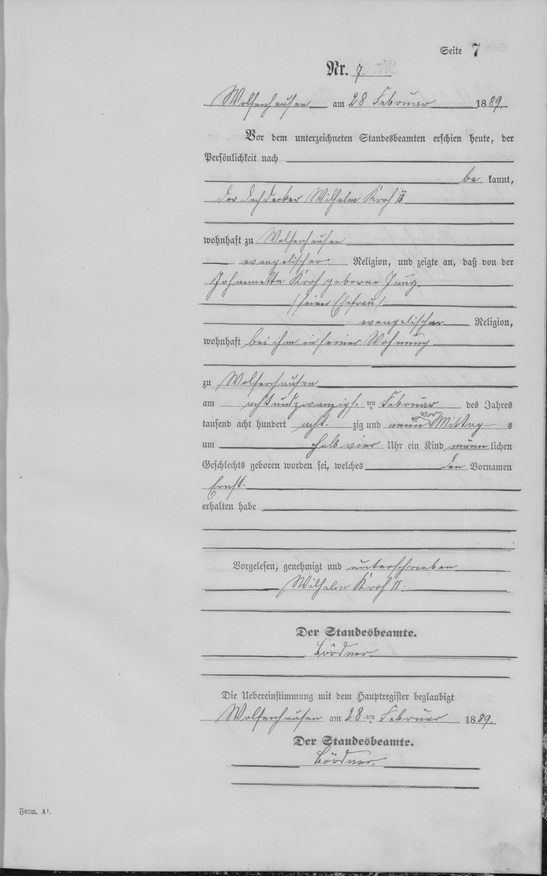 Seite 7
Nr. 7.
Wolfenhausen am 28 Februar 1889.
Vor dem unterzeichneten Standesbeamten erschien heute, der
Persönlichkeit nach
be kannt,
der Dachdecker Wilhelm II
wohnhaft zu Wolfenhausen
evangelischer Religion, und zeigte an, daß von der
Johannetta geborene Jung,
(seiner Ehefrau)
evangelischer Religion,
wohnhaft bei ihm in seiner Wohnung
zu Wolfenhausen
am achtundzwanzigsten Februar des Jahres
tausend acht hundert acht zig und neun Vor Mittag s
um halb vier Uhr ein Kind männ lichen
Geschlechts geboren worden sei, welches den Vornamen
Ernst.
erhalten habe
Vorgelesen, genehmigt und unterschrieben
Wilhelm II.
Der Standesbeamte.
Die Uebereinstimmung mit dem Hauptregister beglaubigt
Wolfenhausen am 28 ten Februar 1889.
Der Standesbeamte.
Form. A¹.